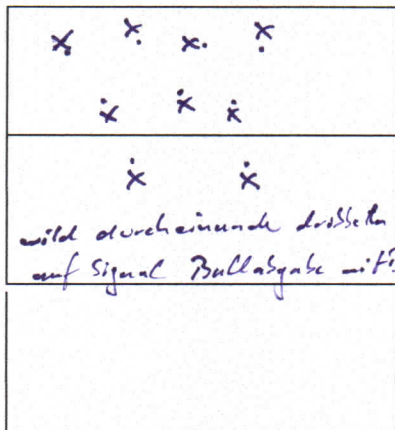 wild durcheinande dribbeln
auf Signal Ballabgabe mit